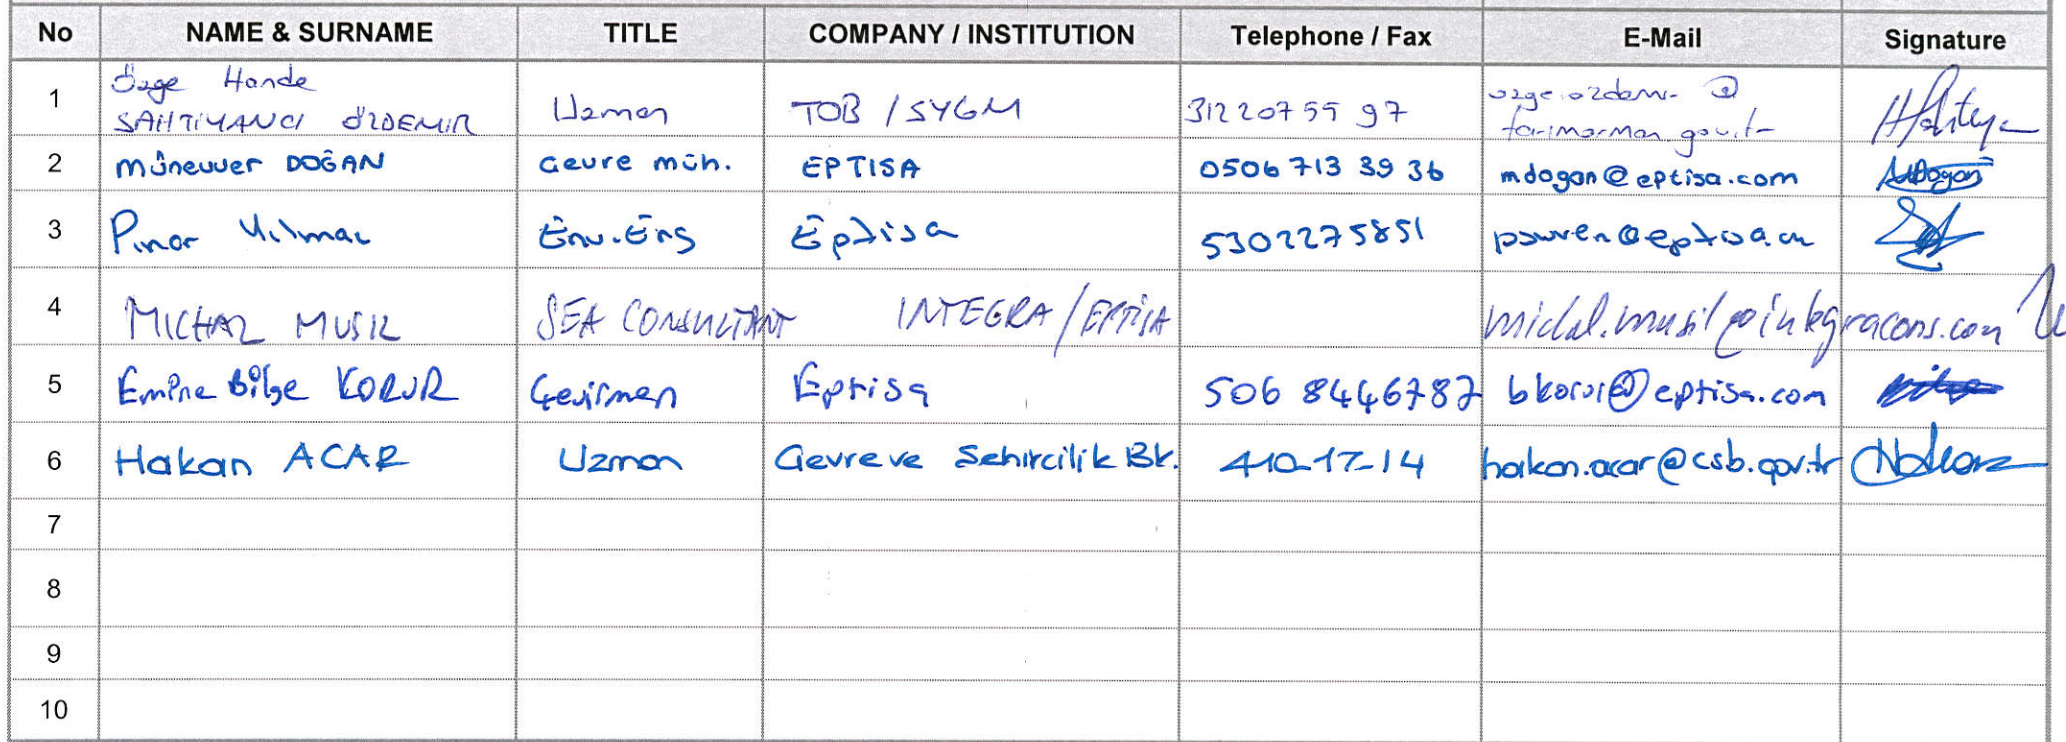 No NAME & SURNAME TITLE COMPANY / INSTITUTION Telephone / Fax E-Mail Signature
1 Özge Hande
SAHTİYANCI ÖZDEMİR Uzman TOB / SYGM 312 207 55 97 ozge.ozdemir@
tarimorman.gov.tr
2 Münevver DOĞAN Çevre müh. EPTISA 0506 713 39 36 mdogan@eptisa.com MDogan
3 Pınar Yılmaz Env. Eng Eptisa 5302275851
4 MICHAL MUSIL SEA CONSULTANT INTEGRA / EPTISA michal.musil@integracons.com
5 Emine Bilge KORUR Çevirmen Eptisa 506 8446787 bkorur@eptisa.com
6 Hakan ACAR Uzman Çevre ve Şehircilik Bk. 410-17-14 hakan.acar@csb.gov.tr
7
8
9
10